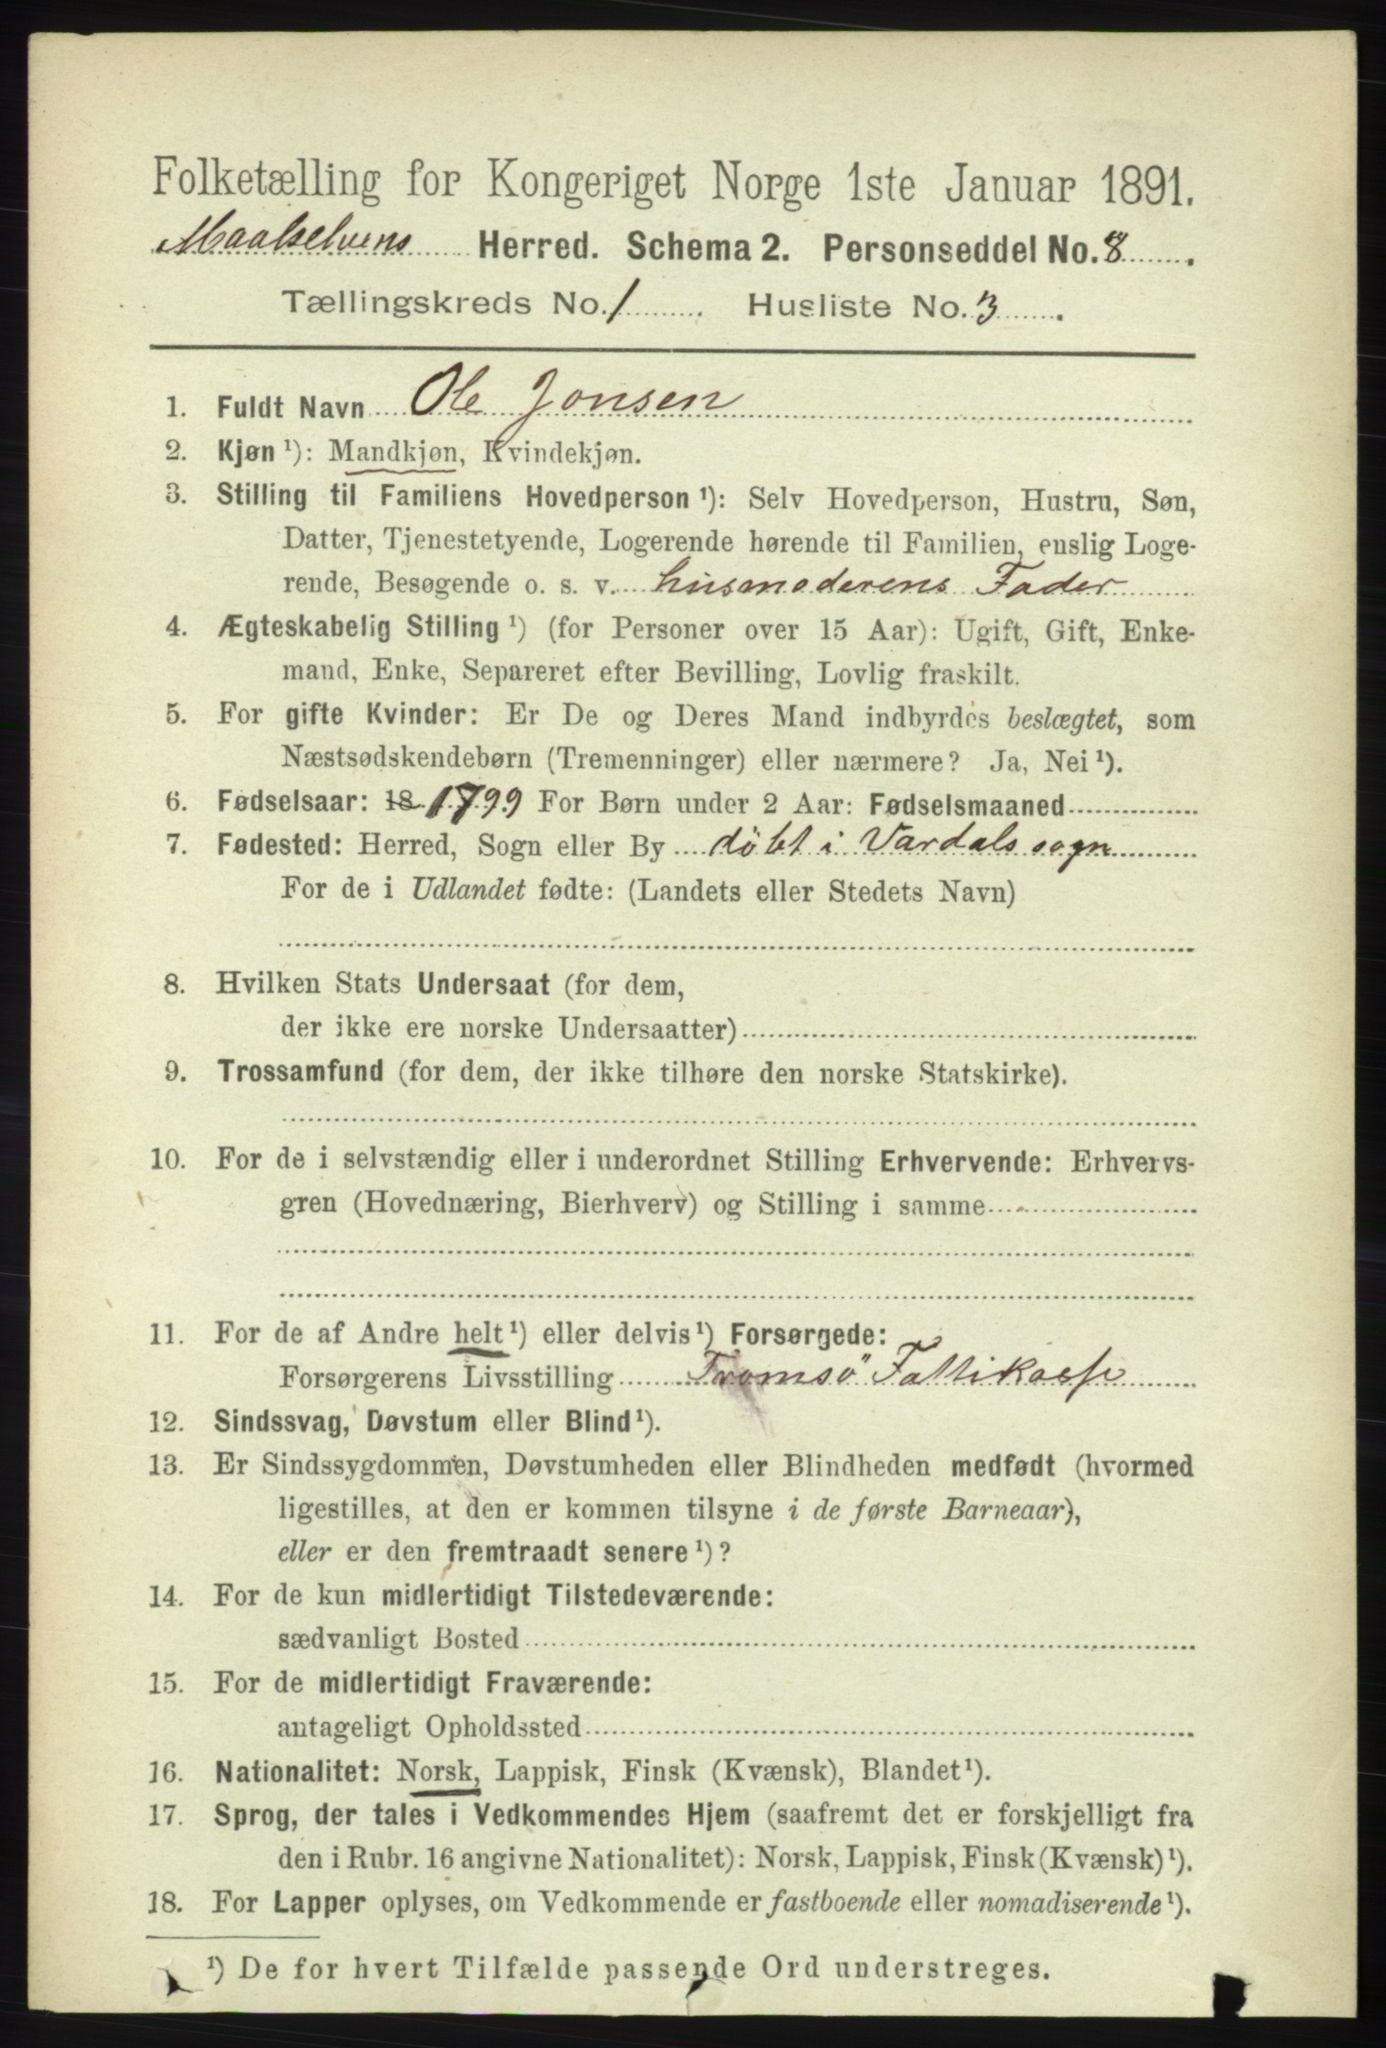 Folketælling for Kongeriget Norge 1ste Januar 1891.
Maalselvens Herred. Schema 2. Personseddel No. 8.
Tællingskreds No. 1. Husliste No. 3.
1. Fuldt Navn Ole Jonsen
2. Kjøn ¹): Mandkjøn, Kvindekjøn.
3. Stilling til Familiens Hovedperson ¹): Selv Hovedperson, Hustru, Søn,
Datter, Tjenestetyende, Logerende hørende til Familien, enslig Loge-
rende, Besøgende o. s. v. husmoderens Fader
4. Ægteskabelig Stilling ¹) (for Personer over 15 Aar): Ugift, Gift, Enke-
mand, Enke, Separeret efter Bevilling, Lovlig fraskilt.
5. For gifte Kvinder: Er De og Deres Mand indbyrdes beslægtet, som
Næstsødskendebørn (Tremenninger) eller nærmere? Ja, Nei ¹).
6. Fødselsaar: 18 1799 For Børn under 2 Aar: Fødselsmaaned
7. Fødested: Herred, Sogn eller By døbt i Vardals sogn
For de i Udlandet fødte: (Landets eller Stedets Navn)
8. Hvilken Stats Undersaat (for dem,
der ikke ere norske Undersaatter)
9. Trossamfund (for dem, der ikke tilhøre den norske Statskirke).
10. For de i selvstændig eller i underordnet Stilling Erhvervende: Erhvervs-
gren (Hovednæring, Bierhverv) og Stilling i samme
11. For de af Andre helt ¹) eller delvis ¹) Forsørgede:
Forsørgerens Livsstilling Tromsö Fattikasse
12. Sindssvag, Døvstum eller Blind ¹).
13. Er Sindssygdommen, Døvstumheden eller Blindheden medfødt (hvormed
ligestilles, at den er kommen tilsyne i de første Barneaar),
eller er den fremtraadt senere ¹)?
14. For de kun midlertidigt Tilstedeværende:
sædvanligt Bosted
15. For de midlertidigt Fraværende:
antageligt Opholdssted
16. Nationalitet: Norsk, Lappisk, Finsk (Kvænsk), Blandet ¹).
17. Sprog, der tales i Vedkommendes Hjem (saafremt det er forskjelligt fra
den i Rubr. 16 angivne Nationalitet): Norsk, Lappisk, Finsk (Kvænsk) ¹).
18. For Lapper oplyses, om Vedkommende er fastboende eller nomadiserende ¹).
¹) De for hvert Tilfælde passende Ord understreges.